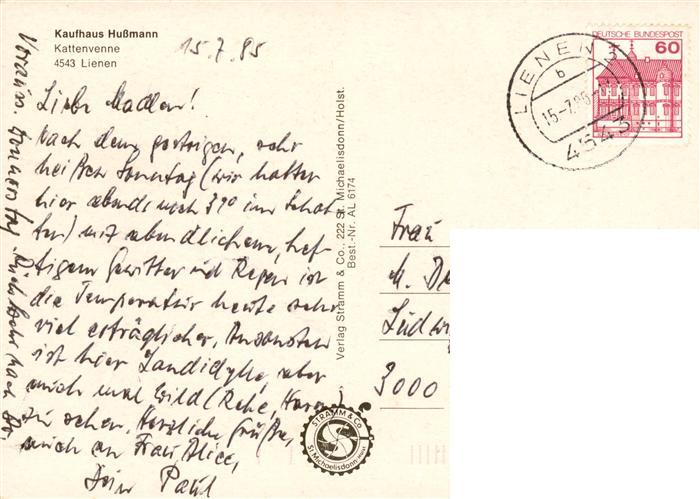 Kaufhaus Hußmann
Kattenvenne
4543 Lienen
15.7.85
Liebe Madlen!
Nach dem gestrigen, sehr
heißen Sonntag (wir hatten
hier abends noch 39° im Schat-
ten) mit abendlichem, hef-
tigem Gewitter und Regen ist
die Temperatur heute sehr
viel erträglicher. Ansonsten
ist hier Landidylle, aber
auch mal Wild (Rehe, Hasen)
zu sehen. Herzliche Grüße,
auch an Frau Alice,
Dein Paul
Donnerstag
Verlag Stramm & Co., 222 St. Michaelisdonn/Holst.
Best.-Nr. AL 6174
STRAMM & Co.
St Michaelisdonn
DEUTSCHE BUNDESPOST
60
LIENEN 3
b
15.-7.85
4543
Frau
M.
3000